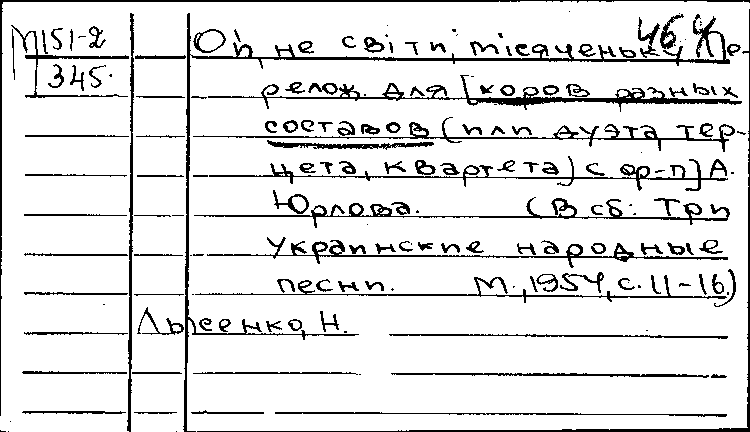 М151-2
345.
Ой, не світи, місяченьку, Пе-
релож. для [хоров разных
составов (или дуэта, тер-
цета, квартета) с ф-п] А.
Юрлова. (В сб: Три
украинские народные
песни. М., 1954, с. 11-16.)
Лысенко, Н.